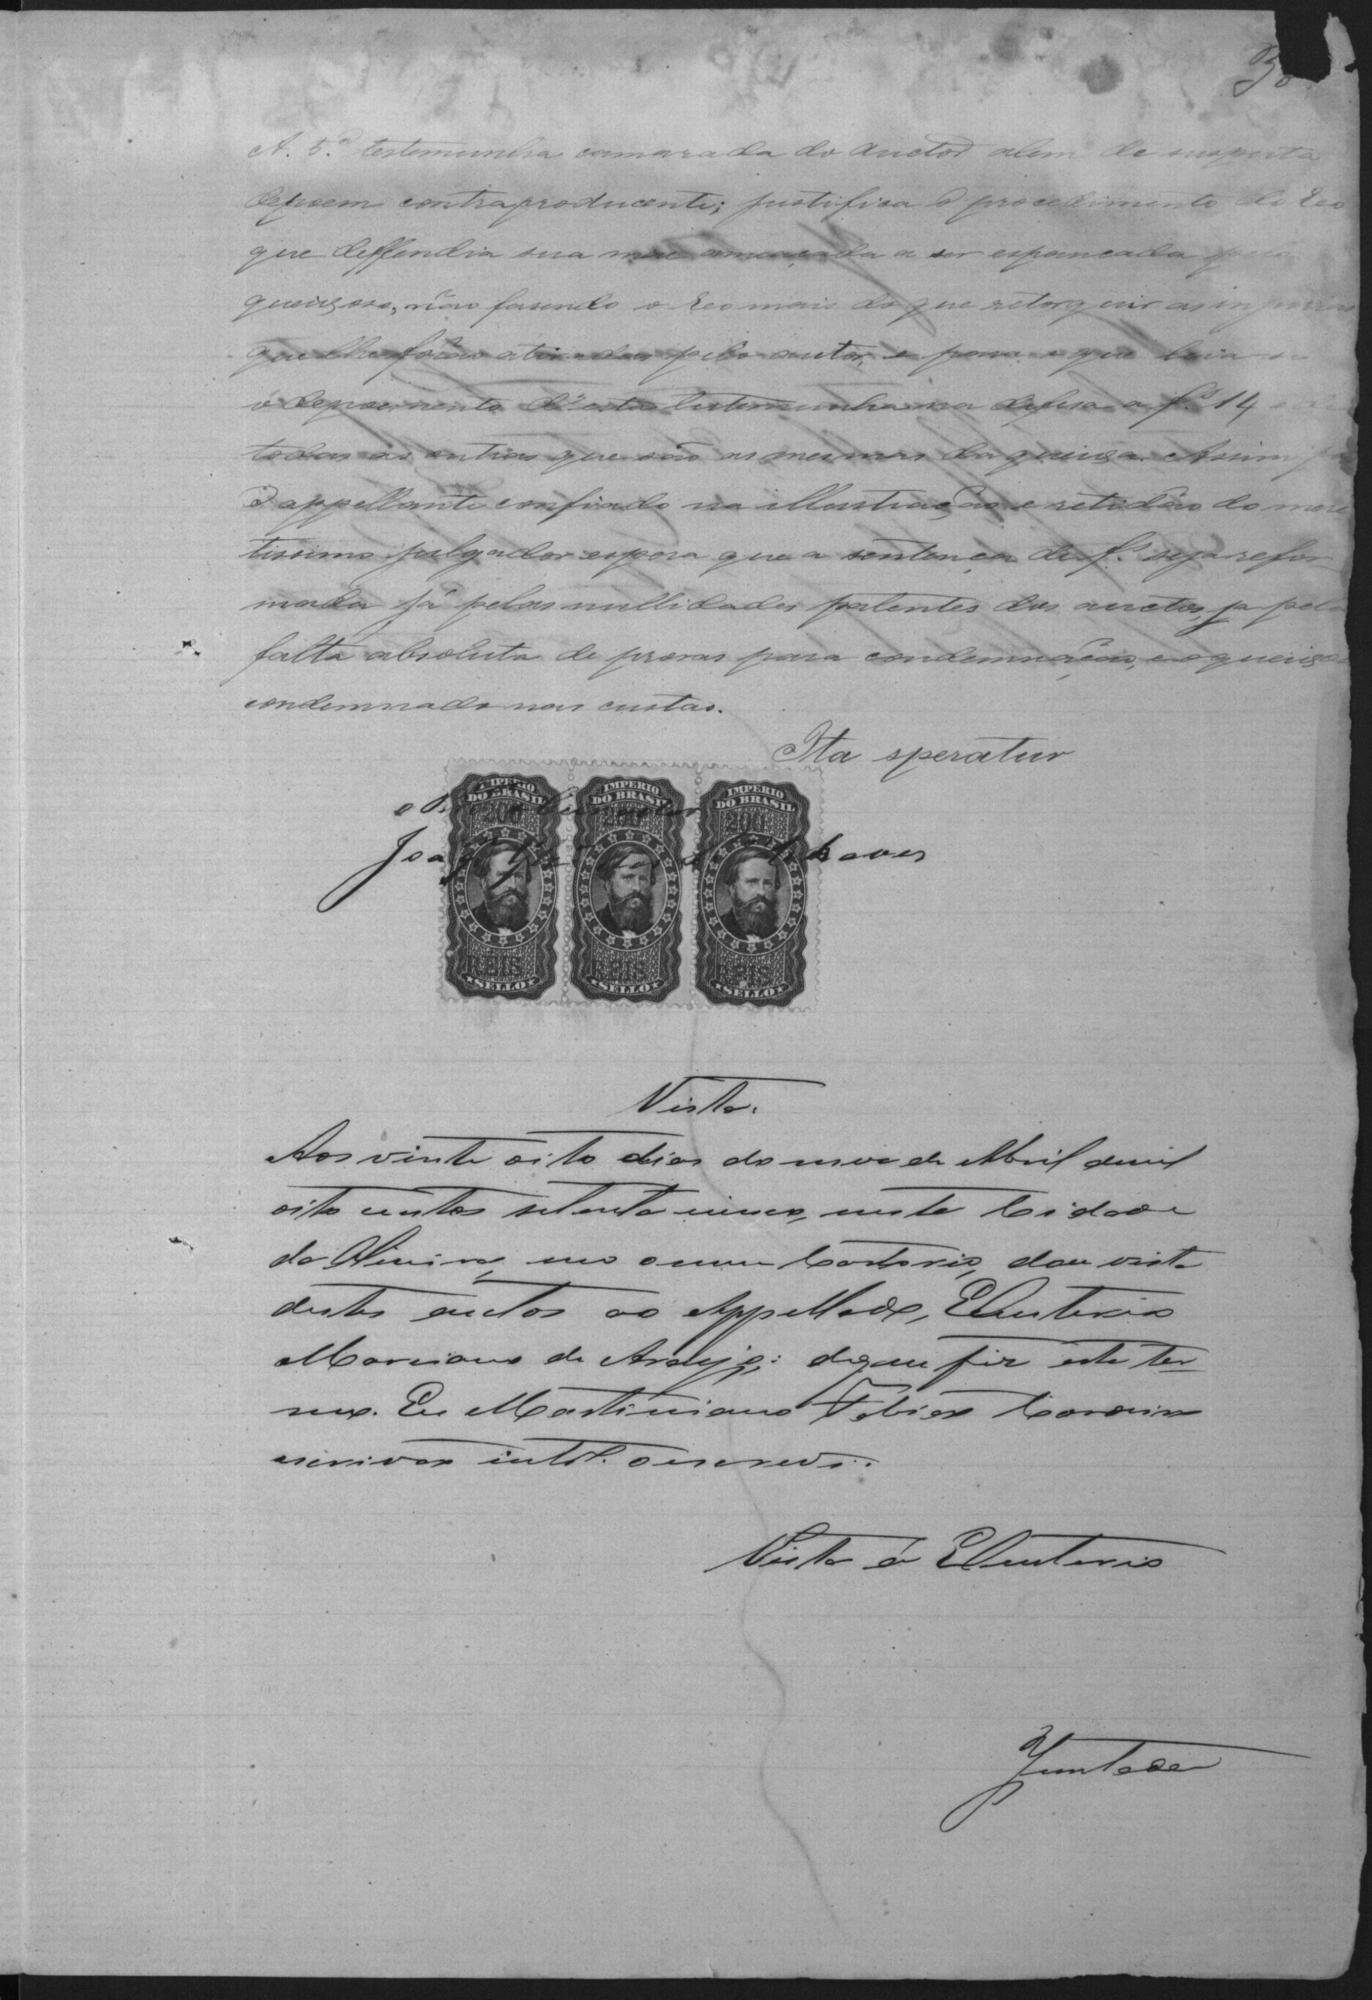 30
A. 5.ª testemunha camarada do Auctor alem de suspeita
depoem contraproducente; justifica o procedimento do Reo
que deffendia sua mãe ameaçada a ser espancada pelo
queixoso, não fasendo o Reo mais do que retorquir as injurias
que lhe forão atiradas pelo autor, e para o que leia-se
o depoimento d'esta testemunha na defesa a f. 14 e de
todas as outras que são as mesmas da queixa. Assim pois
o appellante confiado na illustração e retidão do mere
tissimo julgador espera que a sentença de f. seja refor
mada já pelas nullidades patentes dos auctos, ja pela
falta absoluta de provas para condemnação, e o queixoso
condemnado nas custas.
Ita speratur
IMPERIO DO BRASIL 200 REIS SELLO
IMPERIO DO BRASIL 200 REIS SELLO
IMPERIO DO BRASIL 200 REIS SELLO
Chaves
Vista.
Aos vinte oito dias do mez de Abril de mil
oito centos setenta cinco, nesta Cidade
de Oliveira, em o meu Cartorio, dou vista
destes autos ao Appellado, Eleuterio
Marciano de Araujo; de que fiz este ter
mo. Eu Martiniano Tobias
escrivão intº. o escrevi.
Vista á Eleuterio
Juntada